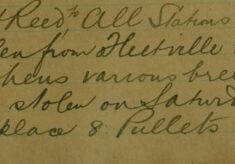 Reed to All Stations
len from Fleetville
hens various bree
stolen on Satur
place 8 Pullets